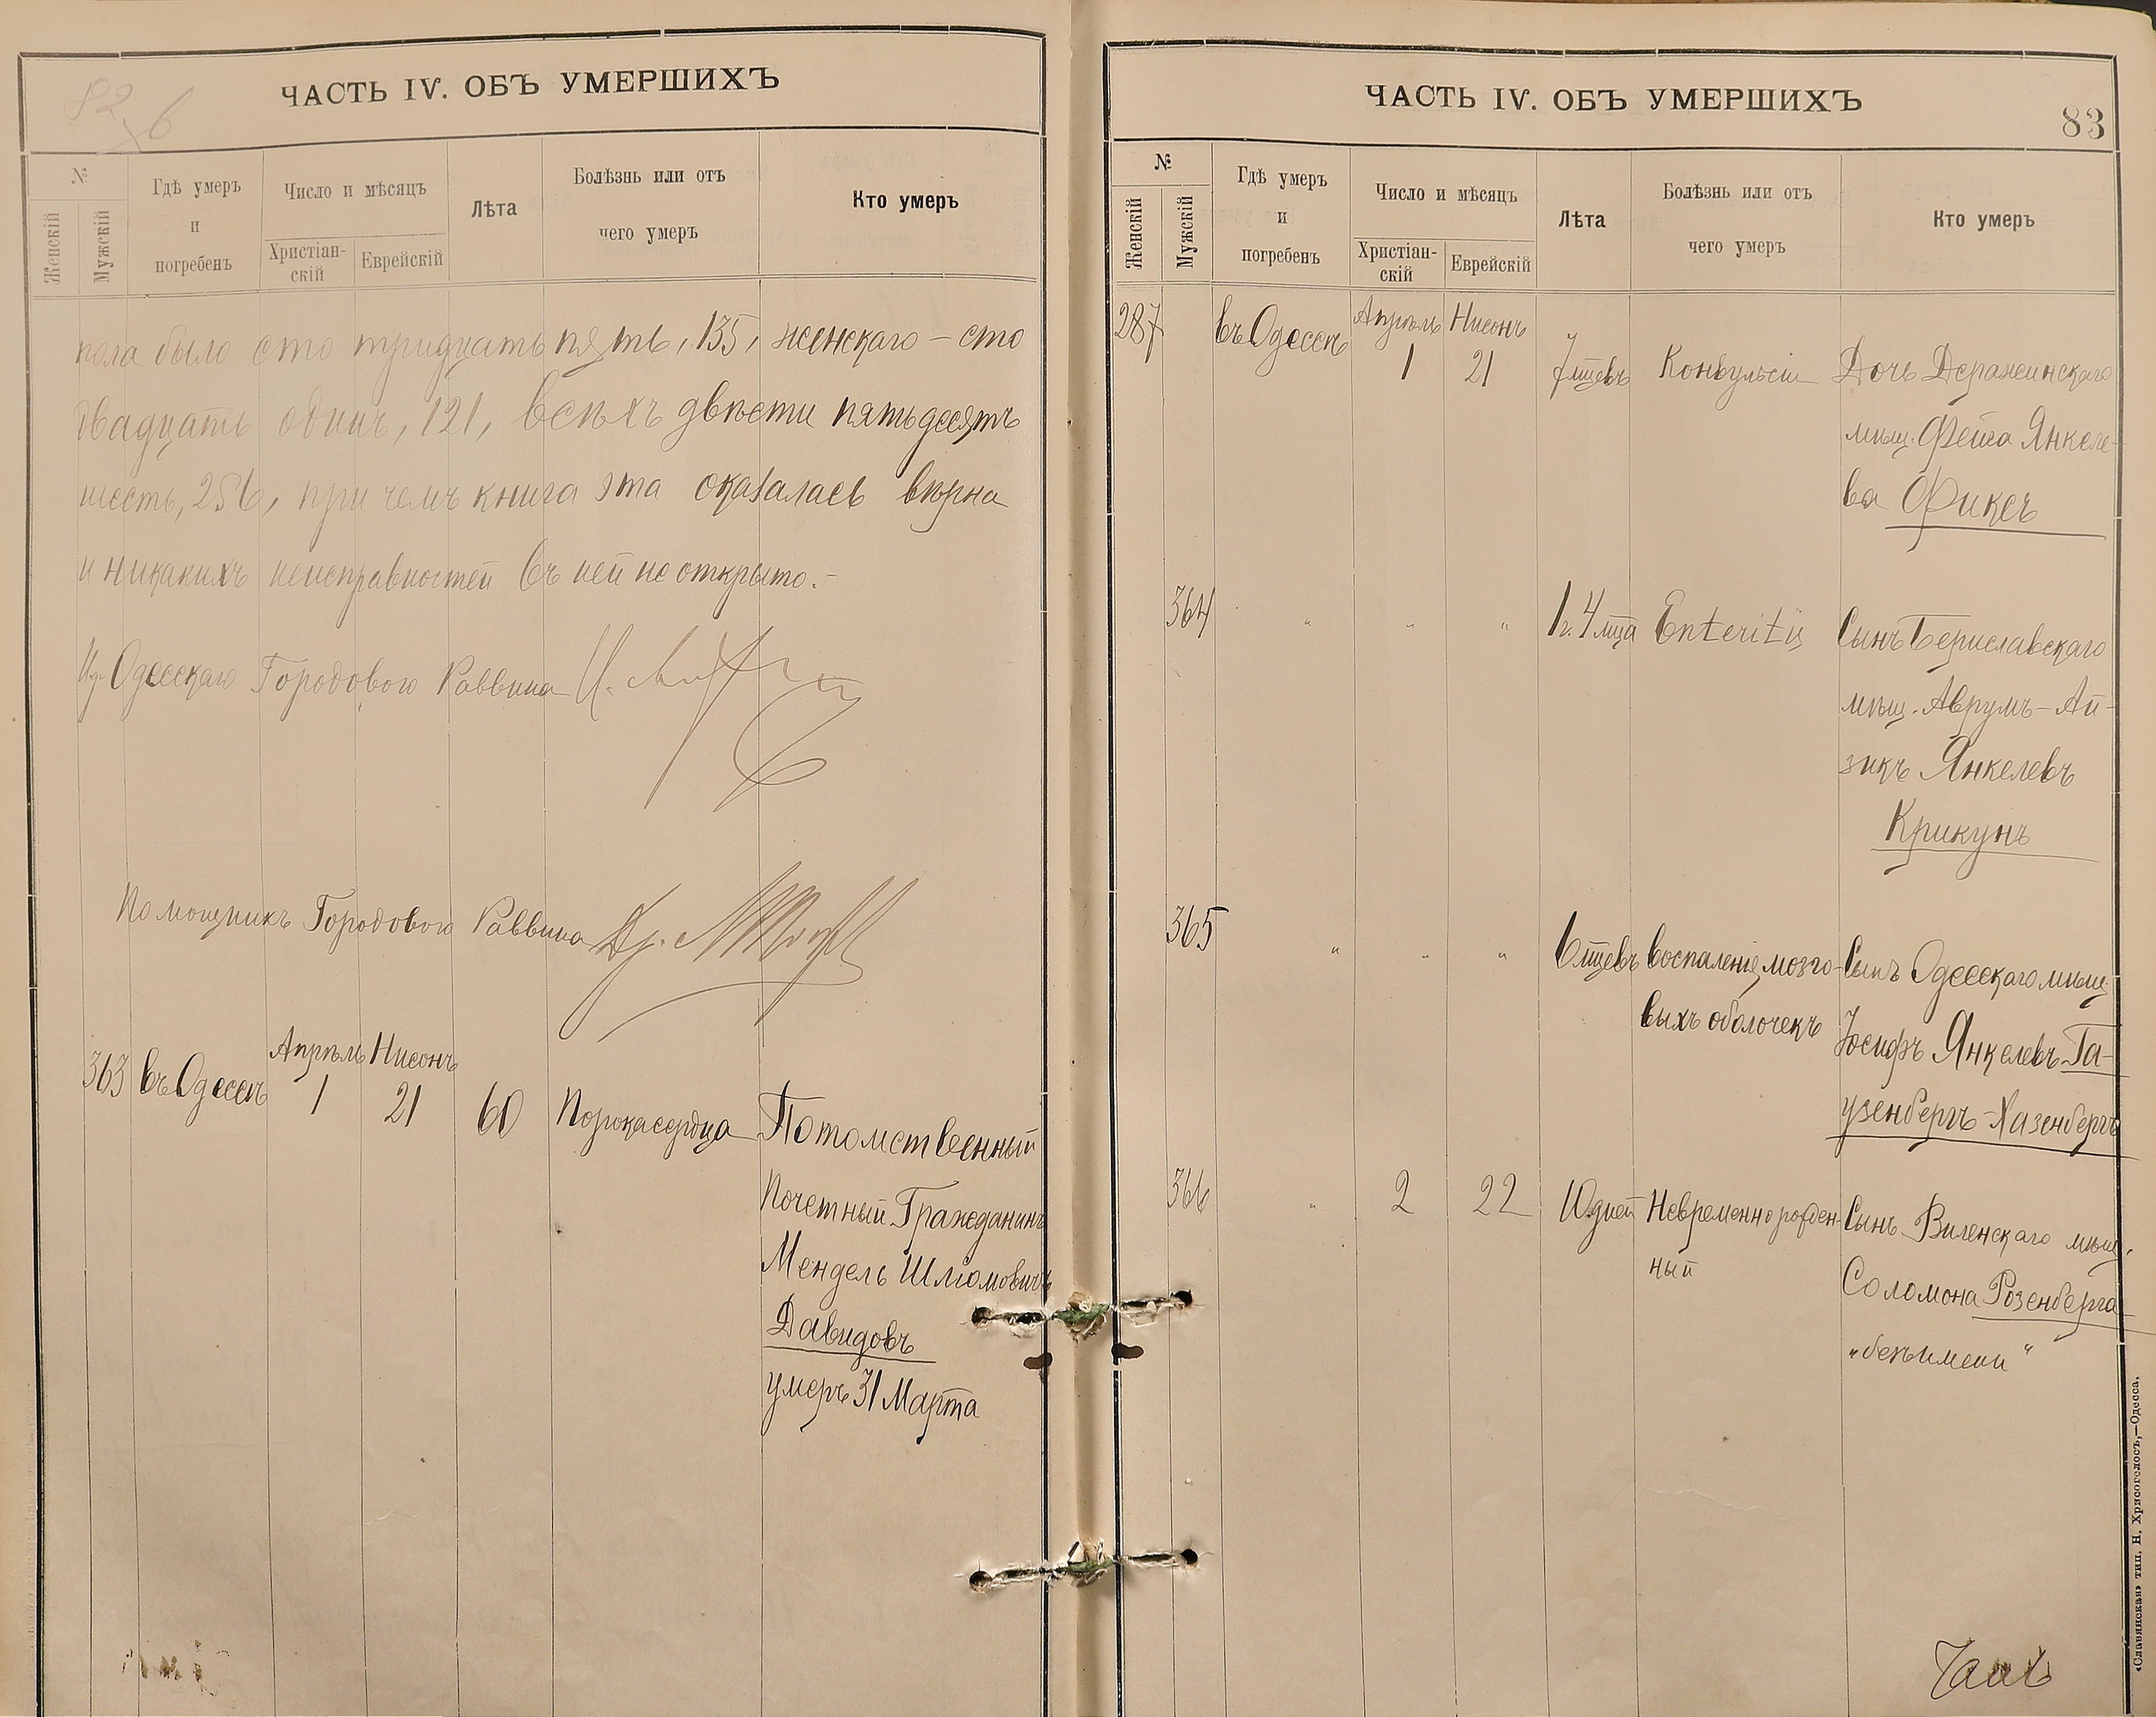 ЧАСТЬ IV. ОБЪ УМЕРШИХЪ
№
Женскій
Мужскій
Гдѣ умеръ
и
погребенъ
Число и мѣсяцъ
Христіан-
скій
Еврейскій
Лѣта
Болѣзнь или отъ
чего умеръ
Кто умеръ
пола было сто тридцать пять, 135, женскаго – сто
двадцать одинъ, 121, всѣхъ двѣсти пятьдесятъ
шесть, 256, при чемъ книга эта оказалась вѣрна
и никакихъ неисправностей въ ней не открыто. –
И. Одесскаго Городового Раввина
Помощникъ Городового Раввина Др.
363 въ Одессѣ
Апрѣль 1
Нисонъ 21
60
Порока сердца
Потомственный
Почетный Гражданинъ
Мендель Шліомовичъ
Давидовъ
умеръ 31 Марта
ЧАСТЬ IV. ОБЪ УМЕРШИХЪ
83
№
Женскій
Мужскій
Гдѣ умеръ
и
погребенъ
Число и мѣсяцъ
Христіан-
скій
Еврейскій
Лѣта
Болѣзнь или отъ
чего умеръ
Кто умеръ
287 въ Одессѣ
Апрѣль 1
Нисонъ 21
7 мцевъ
Конвульсіи
Дочь Деражнинскаго
мѣщ. Фейга Янкеле-
ва Фиксъ
364 " " "
1 г. 4 мца
Enteritis
Сынъ Бериславскаго
мѣщ. Аврумъ-Ай-
зикъ Янкелевъ
Крикунъ
365 " " "
6 мцевъ
воспаленіе мозго-
выхъ оболочекъ
Сынъ Одесскаго мѣщ.
Іосифъ Янкелевъ Га-
узенбергъ-Хазенбергъ
366 " 2 22
10 дней
Невременно рожден-
ный
Сынъ Виленскаго мѣщ.
Соломона Розенберга
"безъ имени"
«Славянская» тип. Н. Хрисогелосъ,—Одесса.